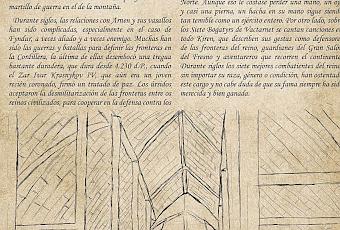 martillo de guerra en el de la montaña.
Durante siglos, las relaciones con Arnen y sus vasallos
han sido complicadas, especialmente en el caso de
Fyndir, a veces aliado y a veces enemigo. Muchas han
sido las guerras y batallas para definir las fronteras en
la Cordillera, la última de ellas desembocó una tregua
bastante duradera, que dura desde 4.230 d.P., cuando
el Zar Ivar Krasnyhov IV, que aún era un joven
recién coronado, firmó un tratado de paz. Los úrsidos
aceptaron la desmilitarización de las fronteras entre os
reinos civilizados, para cooperar en la defensa contra los
Norte. Aunque esto le costase perder una mano, un ojo
y casi una pierna, un hacha en su mano sigue siendo
tan temible como un ejército entero. Por otro lado, sobre
los Siete Bogatyrs de Vactarnet se cantan canciones en
todo Koren, que describen sus gestas como defensores
de las fronteras del reino, guardianes del Gran Salón
del Vreeno y aventureros que recorren el continente.
Durante siglos los siete mejores combatientes del reino,
sin importar su raza, género o condición, han ostentado
este cargo y no cabe duda de que su fama siempre ha sido
merecida y bien ganada.